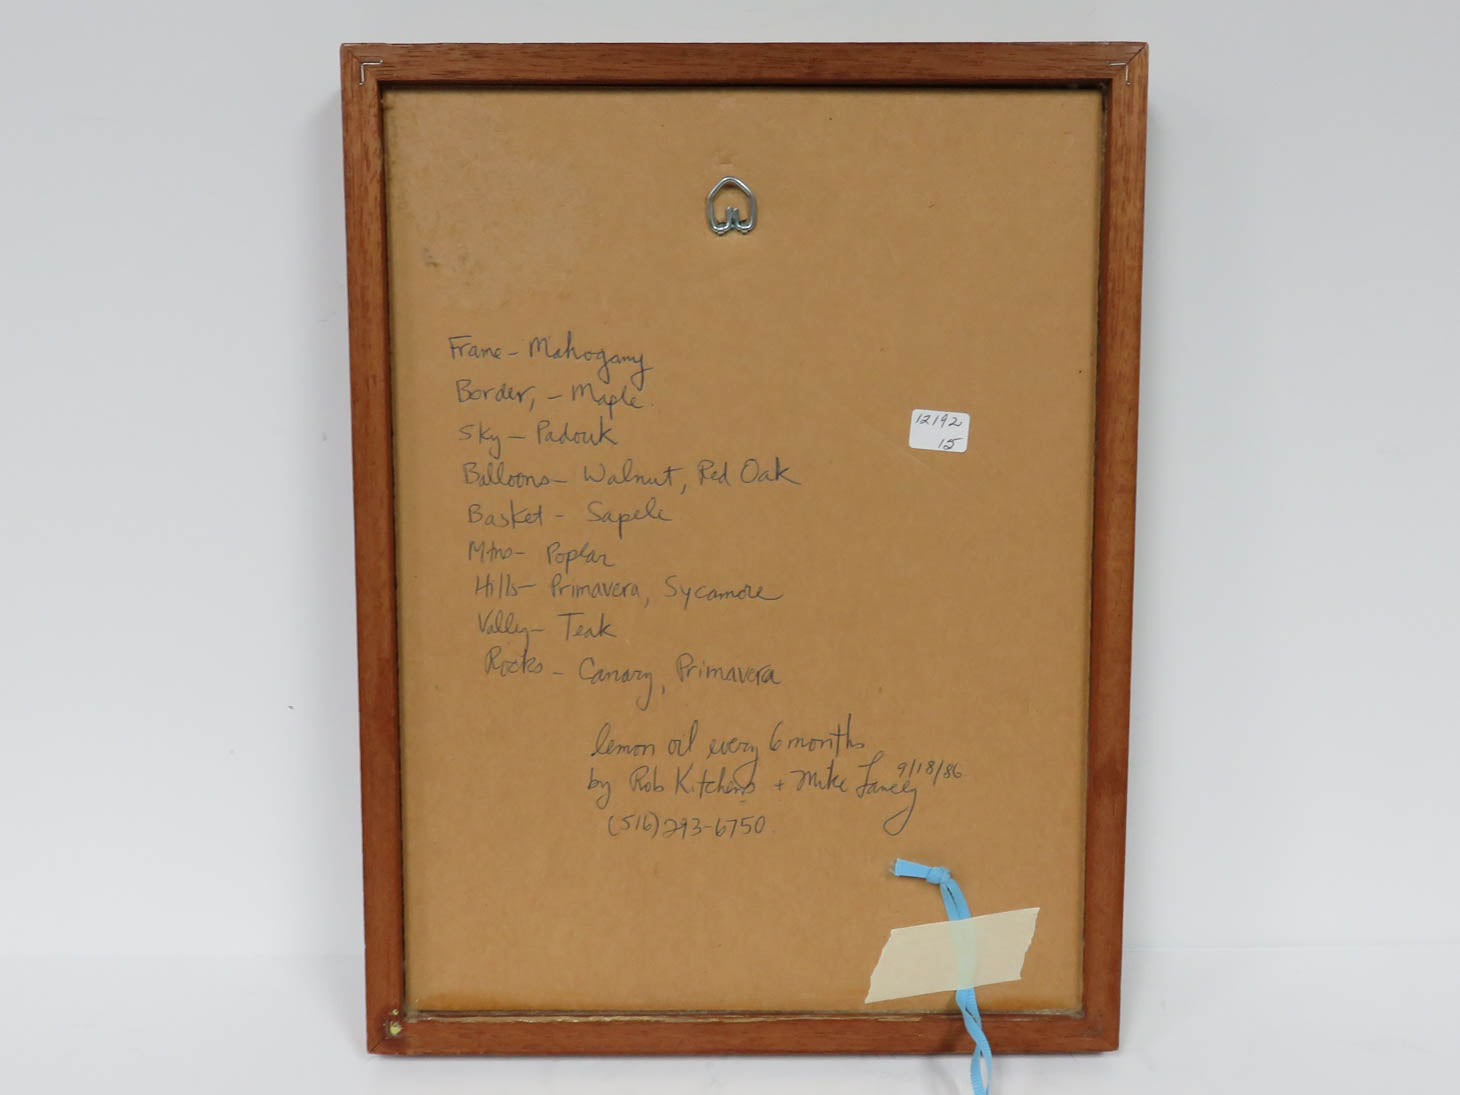 Frame - Mahogany
Border, - Maple.
Sky - Padouk
Balloons - Walnut, Red Oak
Basket - Sapele
Mtns - Poplar
Hills - Primavera, Sycamore
Valley - Teak
Rocks - Canary, Primavera
12192
15
lemon oil every 6 months
by Rob Kitchens + Mike 9/18/86
(516) 293-6750